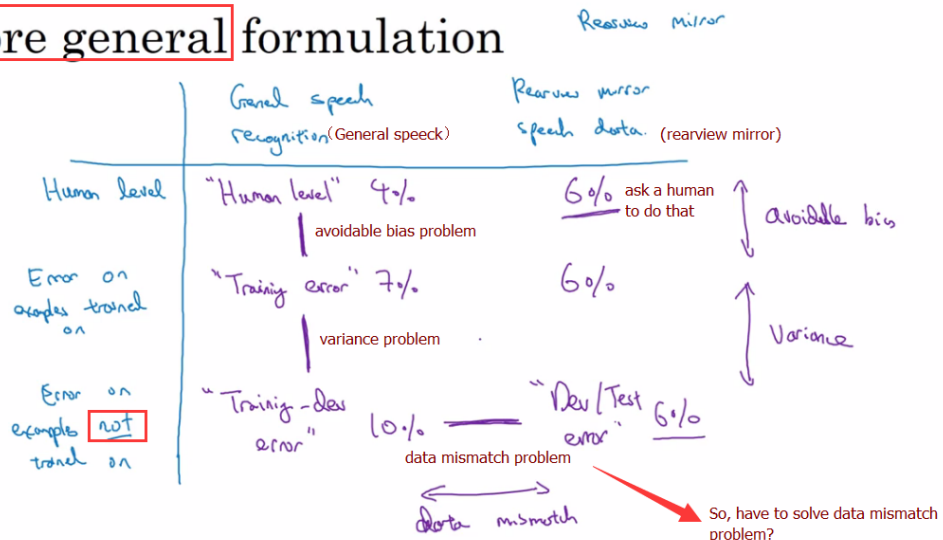 ore general formulation
Rearview mirror
General speech
recognition (General speeck)
Rearview mirror
speech data. (rearview mirror)
Human level
"Human level" 4%
6% ask a human
to do that
avoidable bias
avoidable bias problem
Error on
examples trained
on
"Training error" 7%
6%
variance problem
Variance
Error on
examples not
trained on
"Training-dev
error" 10%
"Dev/Test
error" 6%
data mismatch problem
data mismatch
So, have to solve data mismatch
problem?